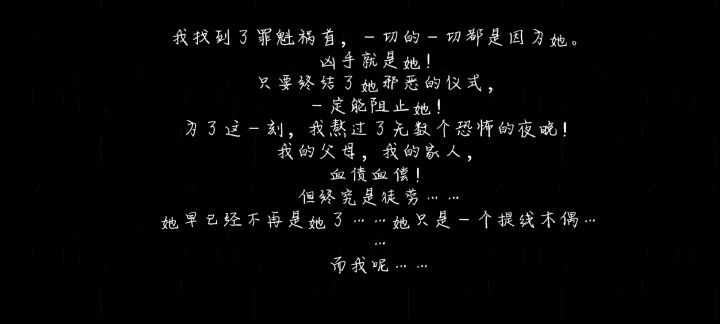 我找到了罪魁祸首，一切的一切都是因为她。
凶手就是她！
只要终结了她邪恶的仪式，
一定能阻止她！
为了这一刻，我熬过了无数个恐怖的夜晚！
我的父母，我的家人，
血债血偿！
但终究是徒劳……
她早已经不再是她了……她只是一个提线木偶…
…
而我呢……